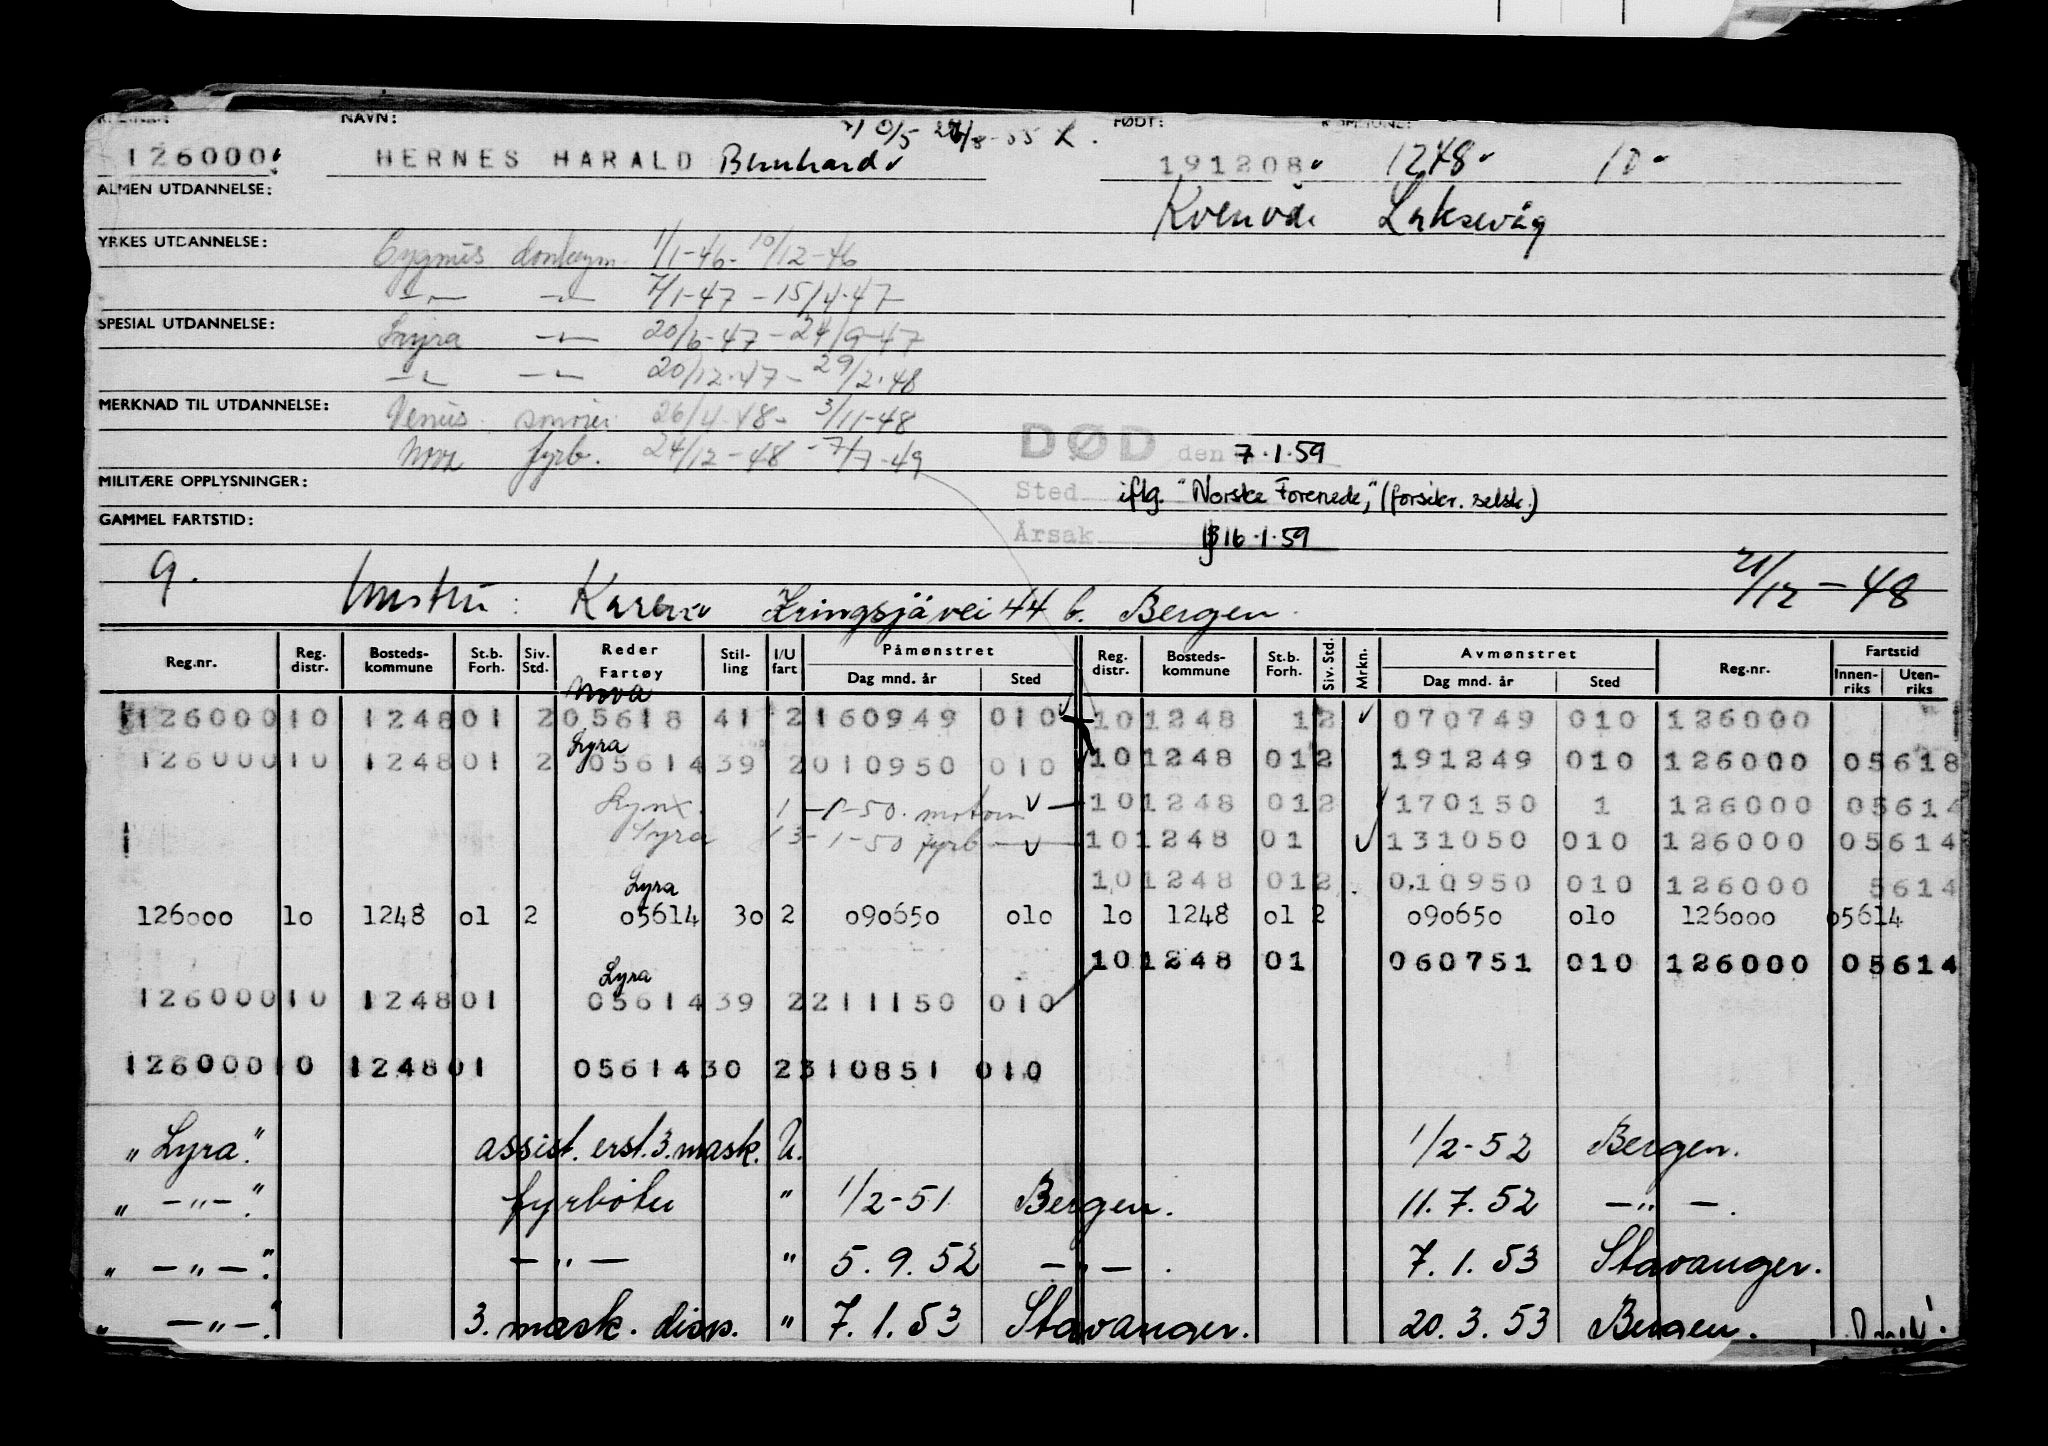 NAVN: FØDT:
126000 HERNES HARALD Bernhard 191208 1248 10
ALMEN UTDANNELSE: Laksevåg
YRKES UTDANNELSE: Cygnus donkeym. 1/1-46 - 10/12-46
—〃— —〃— 7/1-47 - 15/4-47
SPESIAL UTDANNELSE: Lyra —〃— 20/6-47 - 24/9-47
—〃— —〃— 20/12-47 - 29/2-48
MERKNAD TIL UTDANNELSE: Venus smører 26/4-48 - 3/11-48
Nova fyrb. 24/12-48 - 7/7-49
DØD den 7.1.59
MILITÆRE OPPLYSNINGER: Sted iflg. "Norske Forenede," (forsikr. selsk.)
GAMMEL FARTSTID: Årsak 16.1.59
g. 21/12-48
Hustru: Karen Kringsjåvei 44 b. Bergen.
Reg.nr. Reg. distr. Bosteds-kommune St.b. Forh. Siv. Std. Reder Fartøy Stil-ling I/U fart Påmønstret Dag mnd. år Sted Reg. distr. Bosteds-kommune St.b. Forh. Siv. Std. Mrkn. Avmønstret Dag mnd. år Sted Reg.nr. Fartstid Innen-riks Uten-riks
Nova
126000 10 1248 01 2 05618 41 2 160949 010 10 1248 1 2 070749 010 126000
Lyra
126000 10 1248 01 2 05614 39 2 010950 010 10 1248 01 2 191249 010 126000 05618
Lynx. 1-1-50. motorm 10 1248 01 2 170150 1 126000 05614
Lyra 13-1-50 fyrb 10 1248 01 131050 010 126000 05614
Lyra 10 1248 01 2 010950 010 126000 5614
126000 10 1248 01 2 05614 30 2 090650 010 10 1248 01 2 090650 010 126000 05614
Lyra 10 1248 01 060751 010 126000 05614
126000 10 1248 01 05614 39 2 211150 010
126000 10 1248 01 05614 30 2 310851 010
"Lyra". assist. erst. 3. mask. U. 1/2-52 Bergen.
" —〃—". fyrbøter " 1/2-51 Bergen. 11.7.52 —〃—.
" —〃—". —〃— " 5.9.52 —〃—. 7.1.53 Stavanger.
" —〃—". 3. mask. disp. " 7.1.53 Stavanger. 20.3.53 Bergen.